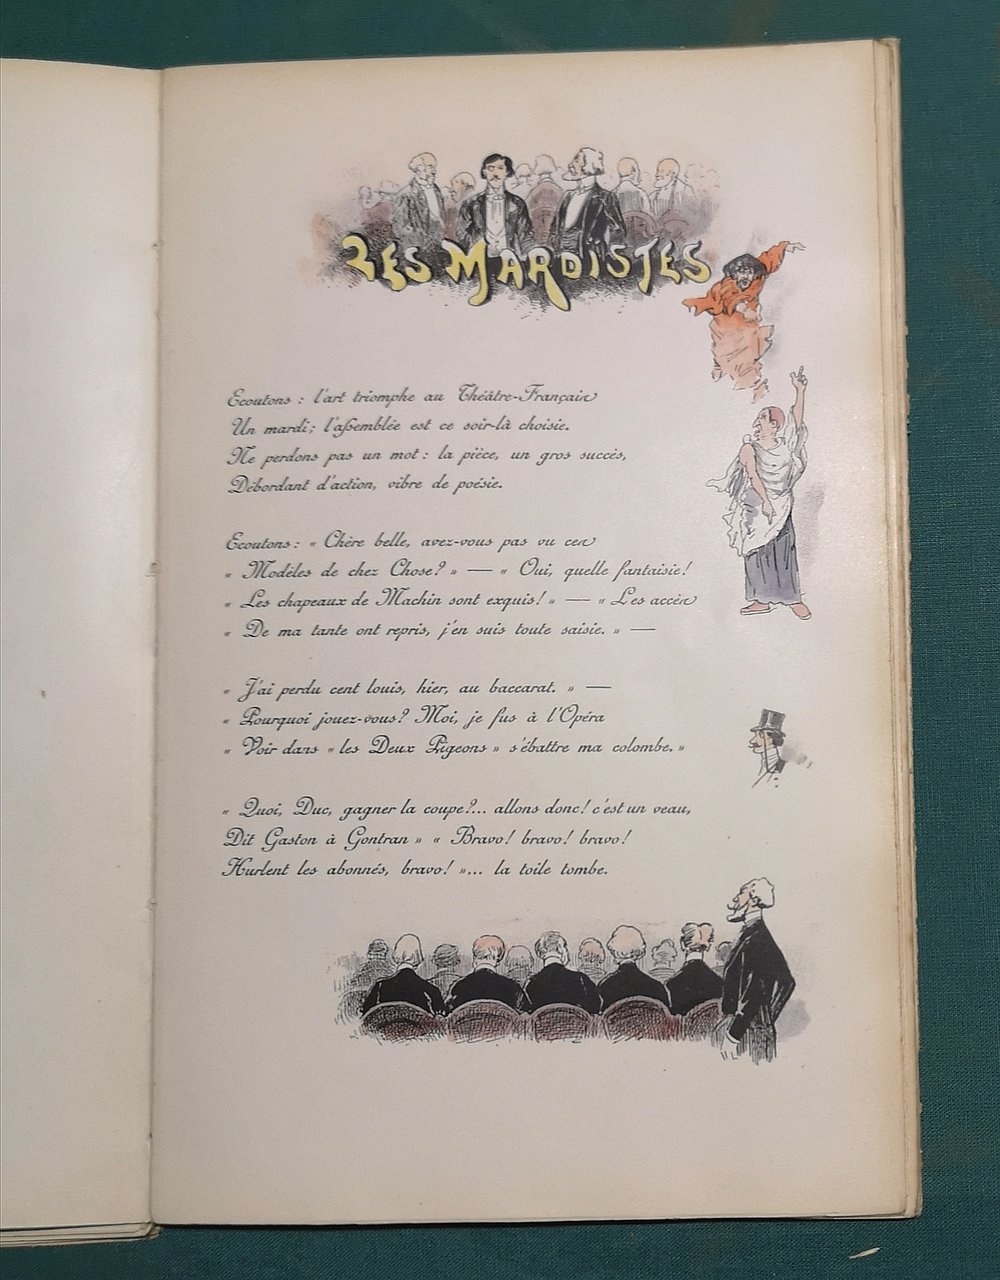 LES MARDISTES
Ecoutons : l'art triomphe au Théâtre-Français
Un mardi ; l'assemblée est ce soir-là choisie.
Ne perdons pas un mot : la pièce, un gros succès,
Débordant d'action, vibre de poésie.
Ecoutons : « Chère belle, avez-vous pas vu ces
« Modèles de chez Chose ? » — « Oui, quelle fantaisie !
« Les chapeaux de Machin sont exquis ! » — « Les accès
« De ma tante ont repris, j'en suis toute saisie. » —
« J'ai perdu cent louis, hier, au baccarat. » —
« Pourquoi jouez-vous ? Moi, je fus à l'Opéra
« Voir dans « les Deux Pigeons » s'ébattre ma colombe. »
« Quoi, Duc, gagner la coupe ?... allons donc ! c'est un veau,
Dit Gaston à Gontran » « Bravo ! bravo ! bravo !
Hurlent les abonnés, bravo ! »... la toile tombe.